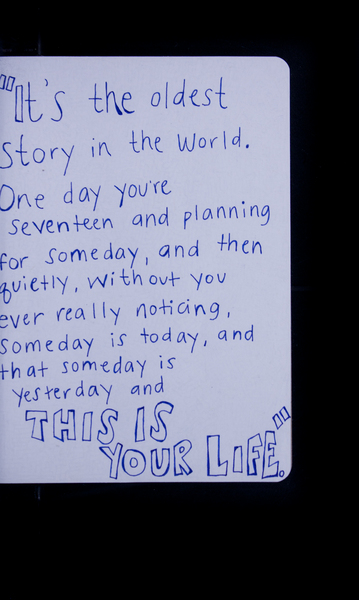 "It's the oldest
story in the world.
One day you're
seventeen and planning
for someday, and then
quietly, without you
ever really noticing,
someday is today, and
that someday is
yesterday and
THIS IS
YOUR LIFE."